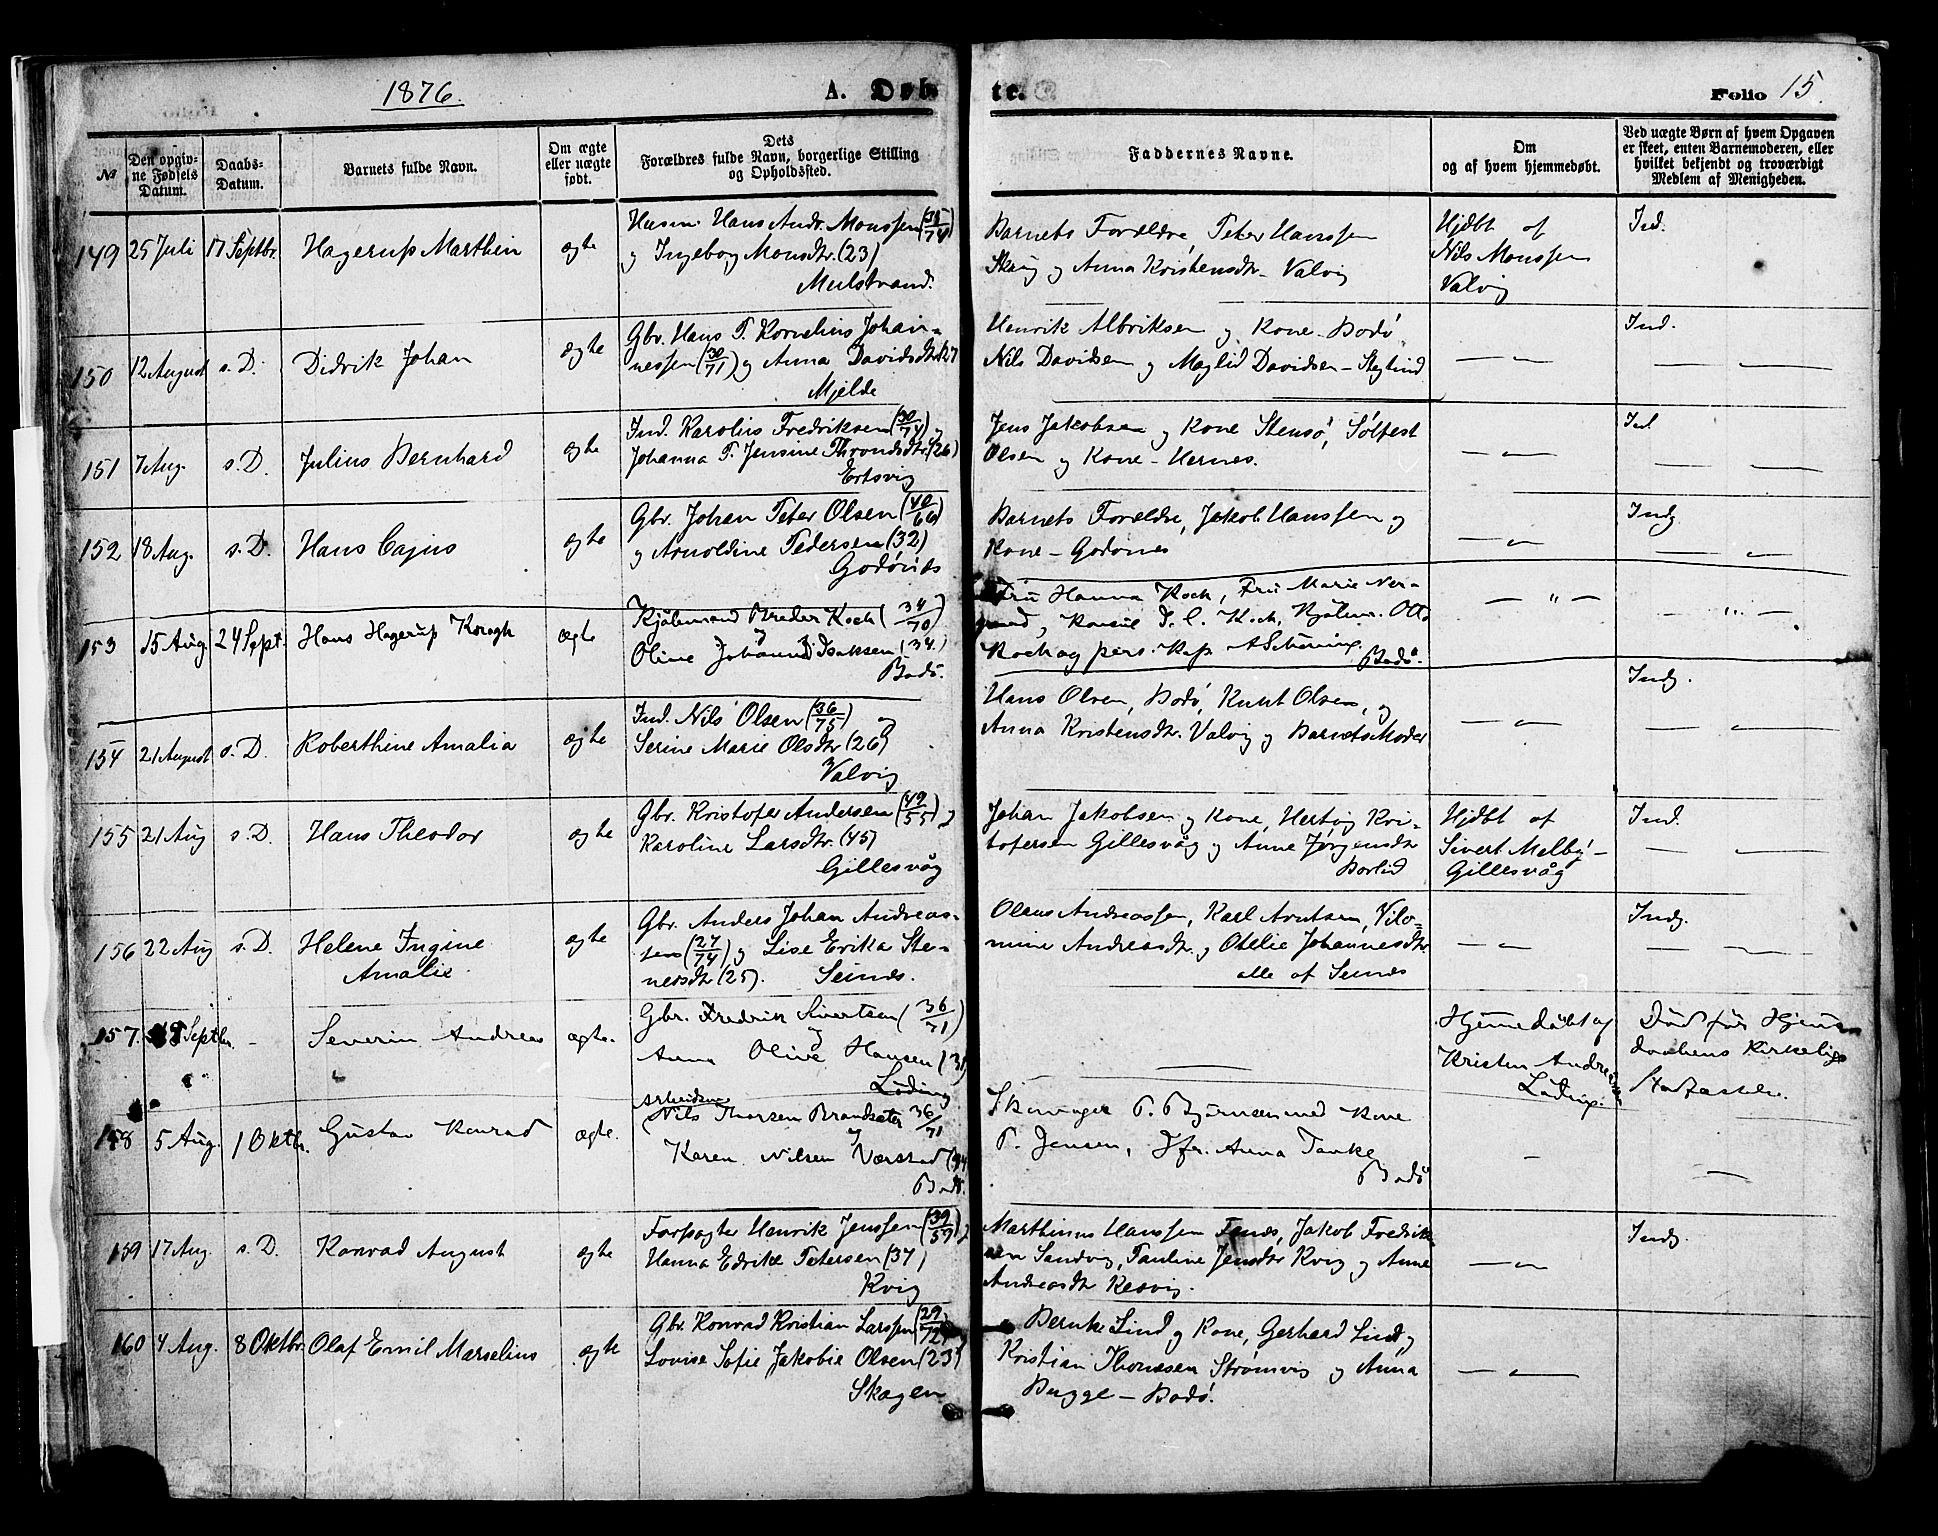 1876.
A. Døbte.
Folio 15.
№
Den opgivne Fødsels Datum.
Daabs-Datum.
Barnets fulde Navn.
Om ægte eller uægte født.
Dets Forældres fulde Navn, borgerlige Stilling og Opholdssted.
Faddernes Navne.
Om og af hvem hjemmedøbt.
Ved uægte Børn af hvem Opgaven er skeet, enten Barnemoderen, eller hvilket bekjendt og troværdigt Medlem af Menigheden.
149 25 Juli 17 Septbr. Hagerup Marthin ægte
Husm. Hans Andr. Monssen (38/74)
og Ingeborg Monsdtr. (23)
Mulstrand.
Barnets Forældre, Peter Hanssen
Skaug og Anna Kristensdtr. Valvig
Hjdbt af
Nils Monssen
Valvig
Ind.
150 12 August s. D. Didrik Johan ægte
Gbr. Hans P. Kornelius Johan-
nessen (30/71) og Anna Davidsdtr. (27
Mjelde
Henrik Albriksen og Kone - Bodø,
Nils Davidsen og Maglid Davidsen - Steglind
Ind.
151 7 Aug. s. D. Julius Bernhard ægte
Ind. Karolius Fredriksen (30/74) og
Johanna P. Jensine Throndsdtr. (26)
Ertsvig
Jens Jakobsen og Kone Stensø, Sølfest
Olsen og Kone - Hernes.
Ind
152 18 Aug. s. D. Hans Cajus ægte
Gbr. Johan Peter Olsen (40/66)
og Arnoldine Pedersen (32)
Godønes
Barnets Forældre, Jakob Hanssen og
Kone - Godønes
Indg.
153 15 Aug. 24 Sept. Hans Hagerup Krogh ægte
Kjøbmand Breder Koch (34/70)
og
Oline Johanne Isaksen (34.)
Bodø.
Fru Hanna Koch, Fru Marie Ner-
, Konsul J. C. Koch, Kjøbm. Otto
Koch og pers. Kap. A Schøning.
Bodø.
154 21 August s. D. Roberthine Amalia ægte
Ind. Nils Olsen (36/75) og
Serine Marie Olsdtr (26)
Valvig
Hans Olsen, Bodø, Knut Olsen, og
Anna Kristensdtr. Valvig og Barnets Moder
Indg.
155 21 Aug s. D. Hans Theodor ægte
Gbr. Kristofer Andersen (49/55) og
Karoline Larsdtr. (45)
Gillesvåg
Johan Jakobsen og Kone, Hertvig Kri-
tofersen Gillesvåg og Anne Jørgensdtr
Hjdbt af
Sivert Melby -
Gillesvåg
Ind.
156 22 Aug s. D. Helene Ingine
Amalie. ægte
Gbr. Anders Johan Andreas-
sen (27/74) og Lise Erika Ste-
nersdtr (25). Seines.
Olaus Andreassen, Karl Arntsen, Vilo-
mine Andreasdtr. og Otelie Johannesdtr
alle af Seines
Indg.
157. 18 Septbr. - Severin Andreas ægte.
Gbr. Fredrik Sivertsen (36/71)
og
Anna Olive Hansen (31
Løding
Hjemmedøbt af
Kristen Andreassen
Løding.
Død før Hjemme-
daabens kirkelige
Stadfæstelse.
158 5 Aug. 1 Oktbr. Gustav Konrad ægte.
Arbeidsm.
Nils Thorsen Brandsæter 36/71
og
Karen Nilsen Værstad
Bodø.
P. Bjørnsen med Kone
P. Jensen, Jfr. Anna Tanke
Bodø
159 17 Aug. s. D. Konrad August ægte
Forpagter Henrik Jenssen (39/59) og
Hanna Edrike Petersen (37)
Kvig
Marthinus Hanssen Fenes, Jakob Fredrik-
sen Sandvig, Pauline Jensdtr Kvig og Anne
Andreasdtr Kjesvig.
Indg.
160 4 Aug. 8 Oktbr. Olaf Emil Marselius ægte
Gbr. Konrad Kristian Larssen (29/72) og
Lovise Sofie Jakobie Olsen (23)
Skagen
Bernt Lind og Kone, Gerhard Lind og
Kristian Thomesen Strømsvig og Anna
Bugge - Bodø.